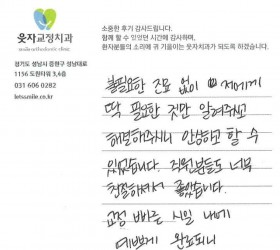 소중한 후기 감사드립니다.
함께 할 수 있었던 시간에 감사하며,
환자분들의 소리에 귀 기울이는 웃자치과가 되도록 하겠습니다.
웃자교정치과
경기도 성남시 중원구 성남대로
1156 도원타워 3,4층
031 606 0282
letssmile.co.kr
불필요한 진료 없이 저에게
딱 필요한 것만 알려주시고
해주시니 안심하고 할 수
있었습니다. 직원분들도 너무
친절하셔서 좋았습니다.
교정 빠른 시일 내에
예쁘게 완료되니